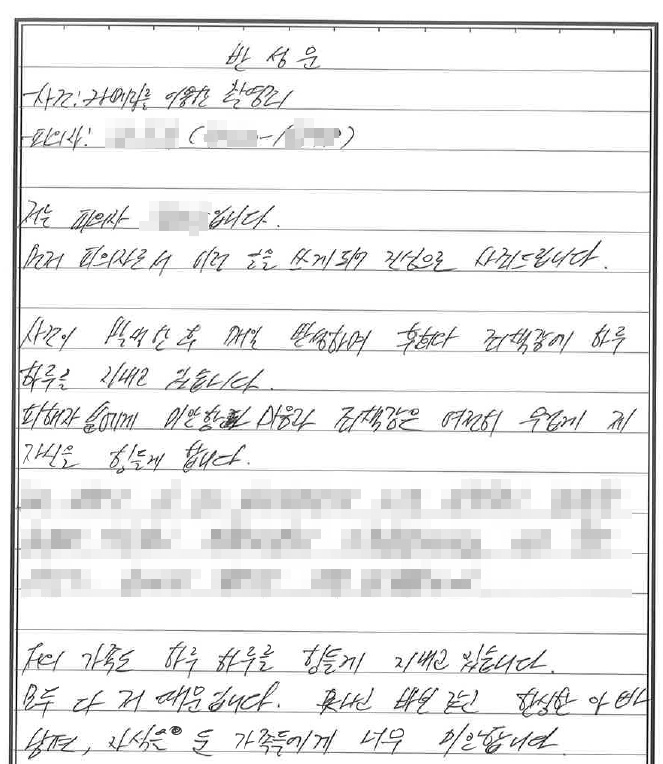 반 성 문
-사건: 카메라를 이용한 촬영죄
-피의자: ( - )
저는 피의자 입니다.
먼저 피의자로서 이런 글을 쓰게되어 진심으로 사죄드립니다.
사건이 발생한 후 매일 반성하며 후회와 죄책감에 하루
하루를 지내고 있습니다.
피해자들에게 미안한 마음과 죄책감은 여전히 무겁게 제
자신을 힘들게 합니다.
저의 가족도 하루 하루를 힘들게 지내고 있습니다.
모두 다 저 때문입니다. 한심한 아빠
남편, 자식을 둔 가족들에게 너무 미안합니다.